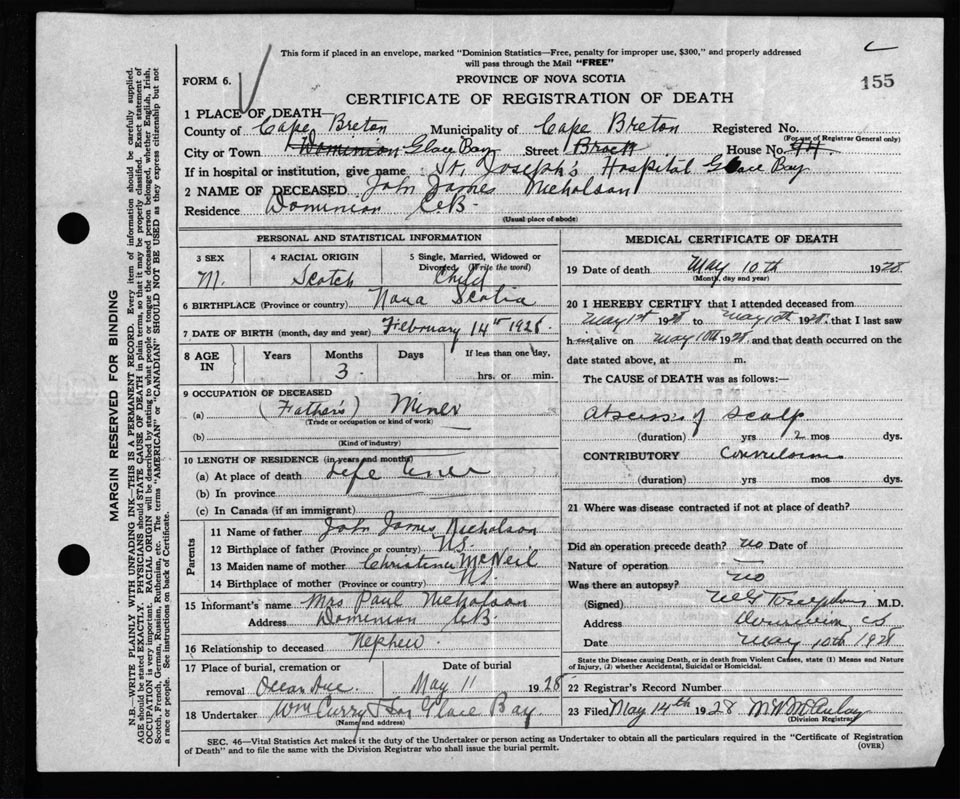 This form if placed in an envelope, marked "Dominion Statistics—Free, penalty for improper use, $300," and properly addressed
will pass through the Mail "FREE"
FORM 6.
PROVINCE OF NOVA SCOTIA
155
CERTIFICATE OF REGISTRATION OF DEATH
1 PLACE OF DEATH—
County of Cape Breton Municipality of Cape Breton Registered No.
(For use of Registrar General only)
City or Town Dominion Glace Bay Street Brock House No. 44
If in hospital or institution, give name St. Joseph's Hospital Glace Bay
2 NAME OF DECEASED John James Nicholson
Residence Dominion C.B.
(Usual place of abode)
PERSONAL AND STATISTICAL INFORMATION
3 SEX 4 RACIAL ORIGIN 5 Single, Married, Widowed or Divorced (Write the word)
M. Scotch Child
6 BIRTHPLACE (Province or country) Nova Scotia
7 DATE OF BIRTH (month, day and year) February 14th 1928
8 AGE IN Years Months Days If less than one day,
3 hrs. or min.
9 OCCUPATION OF DECEASED
(a) (Father's) Miner
(Trade or occupation or kind of work)
(b)
(Kind of industry)
10 LENGTH OF RESIDENCE (in years and months)
(a) At place of death Life time
(b) In province
(c) In Canada (if an immigrant)
Parents
11 Name of father John James Nicholson
12 Birthplace of father (Province or country) N.S.
13 Maiden name of mother Christina McNeil
14 Birthplace of mother (Province or country) N.S.
15 Informant's name Mrs Paul Nicholson
Address Dominion C.B.
16 Relationship to deceased Nephew.
17 Place of burial, cremation or Date of burial
removal Ocean Ave. May 11 1928
18 Undertaker Wm Curry & Son Glace Bay.
(Name and address)
MEDICAL CERTIFICATE OF DEATH
19 Date of death May 10th 1928.
(Month, day and year)
20 I HEREBY CERTIFY that I attended deceased from
May 1st 1928 to May 10th 1928, that I last saw
him alive on May 10th 1928. and that death occurred on the
date stated above, at m.
The CAUSE of DEATH was as follows:—
Abscess of Scalp
(duration) yrs 2 mos dys.
CONTRIBUTORY Convulsions
(duration) yrs mos dys.
21 Where was disease contracted if not at place of death?
Did an operation precede death? no Date of
Nature of operation
Was there an autopsy? no
(Signed) M.D.
Address Dominion C.B.
Date May 10th 1928
State the Disease causing Death, or in death from Violent Causes, state (1) Means and Nature
of Injury, (2) whether Accidental, Suicidal or Homicidal.
22 Registrar's Record Number
23 Filed May 14th 1928 M W McAulay
(Division Registrar)
SEC. 46—Vital Statistics Act makes it the duty of the Undertaker or Person acting as Undertaker to obtain all the particulars required in the "Certificate of Registration
of Death" and to file the same with the Division Registrar who shall issue the burial permit.
(OVER)
MARGIN RESERVED FOR BINDING
N.B.—WRITE PLAINLY WITH UNFADING INK—THIS IS A PERMANENT RECORD. Every item of information should be carefully supplied.
AGE should be stated EXACTLY. PHYSICIANS should STATE CAUSE OF DEATH in plain terms, so that it may be properly classified. Exact statement of
OCCUPATION is very important. RACIAL ORIGIN will be described by stating to what people or tongue the deceased person belonged, whether English, Irish,
Scotch, French, German, Russian, Ruthenian, etc. The terms "AMERICAN" or "CANADIAN" SHOULD NOT BE USED as they express citizenship but not
a race or people. See instructions on back of Certificate.